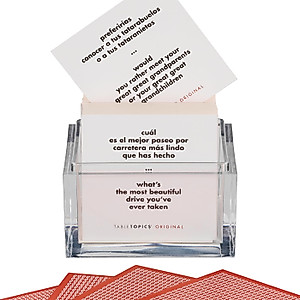 preferirías
conocer a tus tatarabuelos
o a tus tataranietos
...
would
you rather meet your
great great grandparents
or your great great
grandchildren
ORIGINAL
cuál
es el mejor paseo por
carretera más lindo
que has hecho
...
what's
the most beautiful
drive you've
ever taken
TABLETOPICS® ORIGINAL